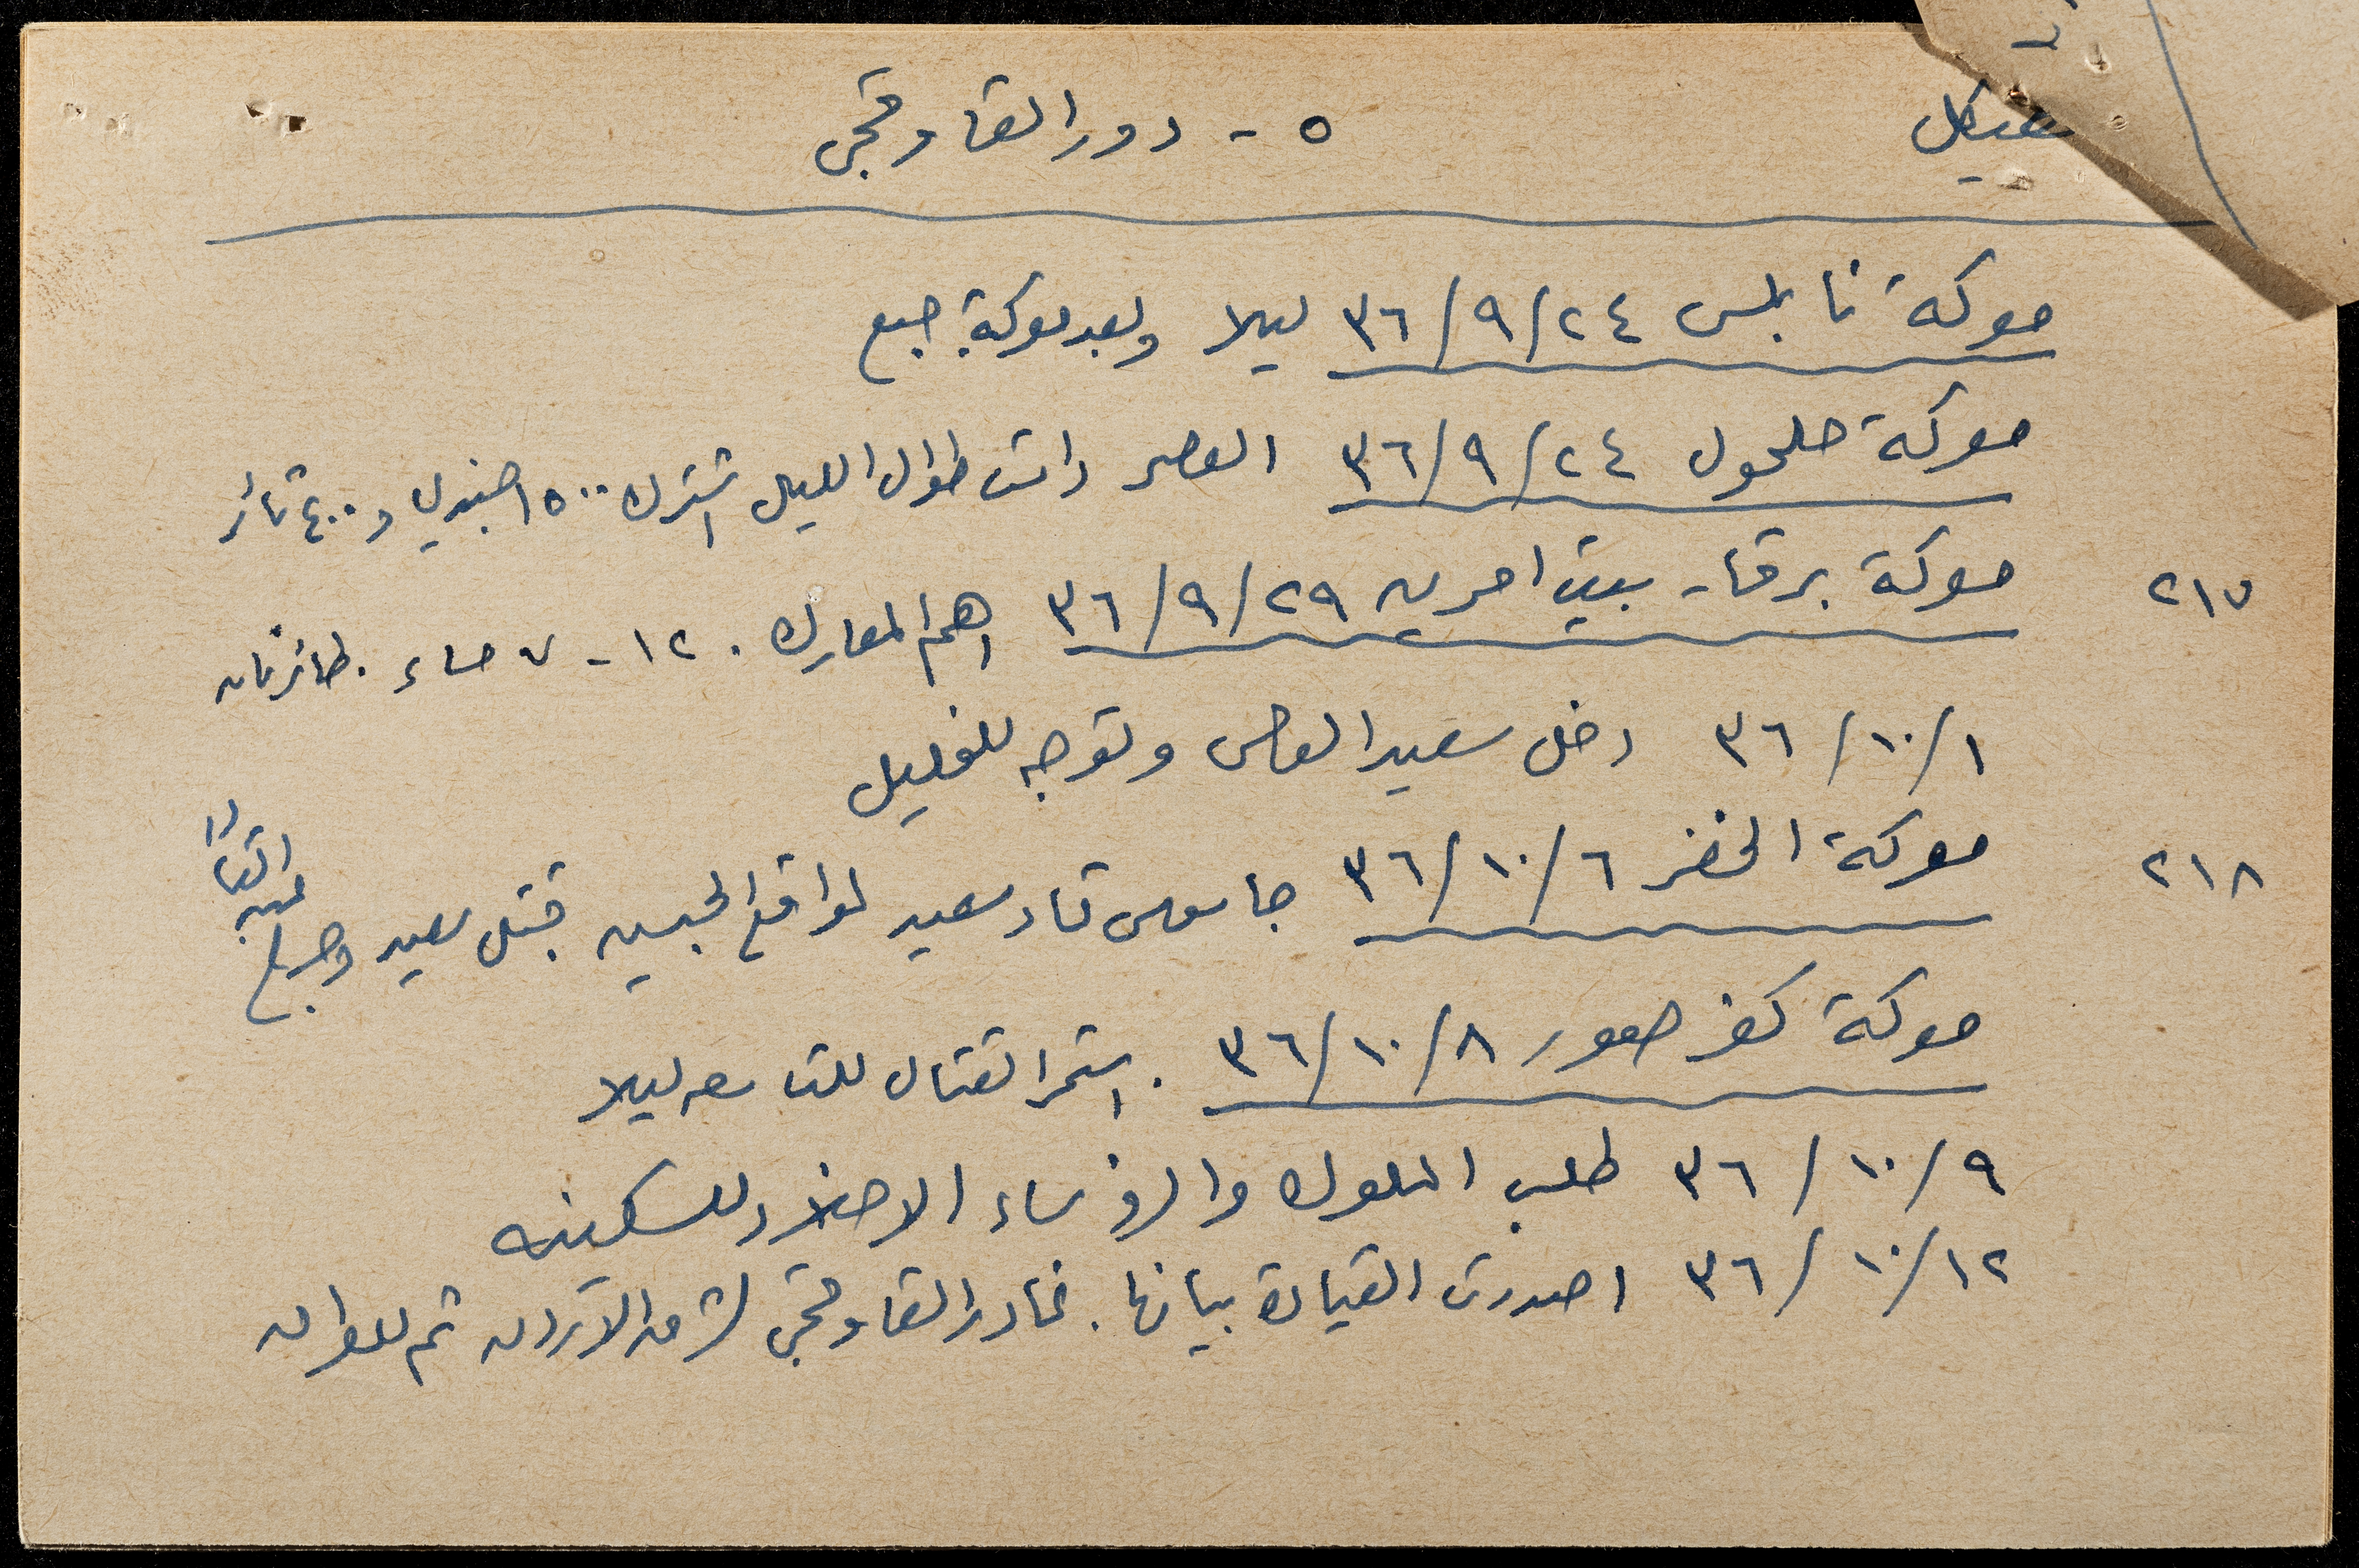 هيكل
٥ - دور القاوقجي
معركة نابلس ٢٤/٩/٣٦ ليلا وبعد معركة جبع
معركة حلحول ٢٤/٩/٣٦ العصر دامت طوال الليل اشترك ١٥٠٠ جندي و ٤٠٠ ثائر
٢١٧ معركة برقا - بيت امرين ٢٩/٩/٣٦ اهم المعارك . ١٢ - ٧ مساء . طائرتان
١/١٠/٣٦ دخل سعيد العاص وتوجه للخليل
٢١٨ معركة الخضر ٦/١٠/٣٦ قاد سعيد لمواقع الجيش قتل سعيد وجرح
معركة كفر صور ٨/١٠/٣٦ . استمر القتال للتاسعه ليلا
٩/١٠/٣٦ طلب الملوك والرؤساء الاخلاد للسكينه
١٢/١٠/٣٦ اصدرت القيادة بيانها . غادر القاوقجي لشرق الاردن ثم للعراق